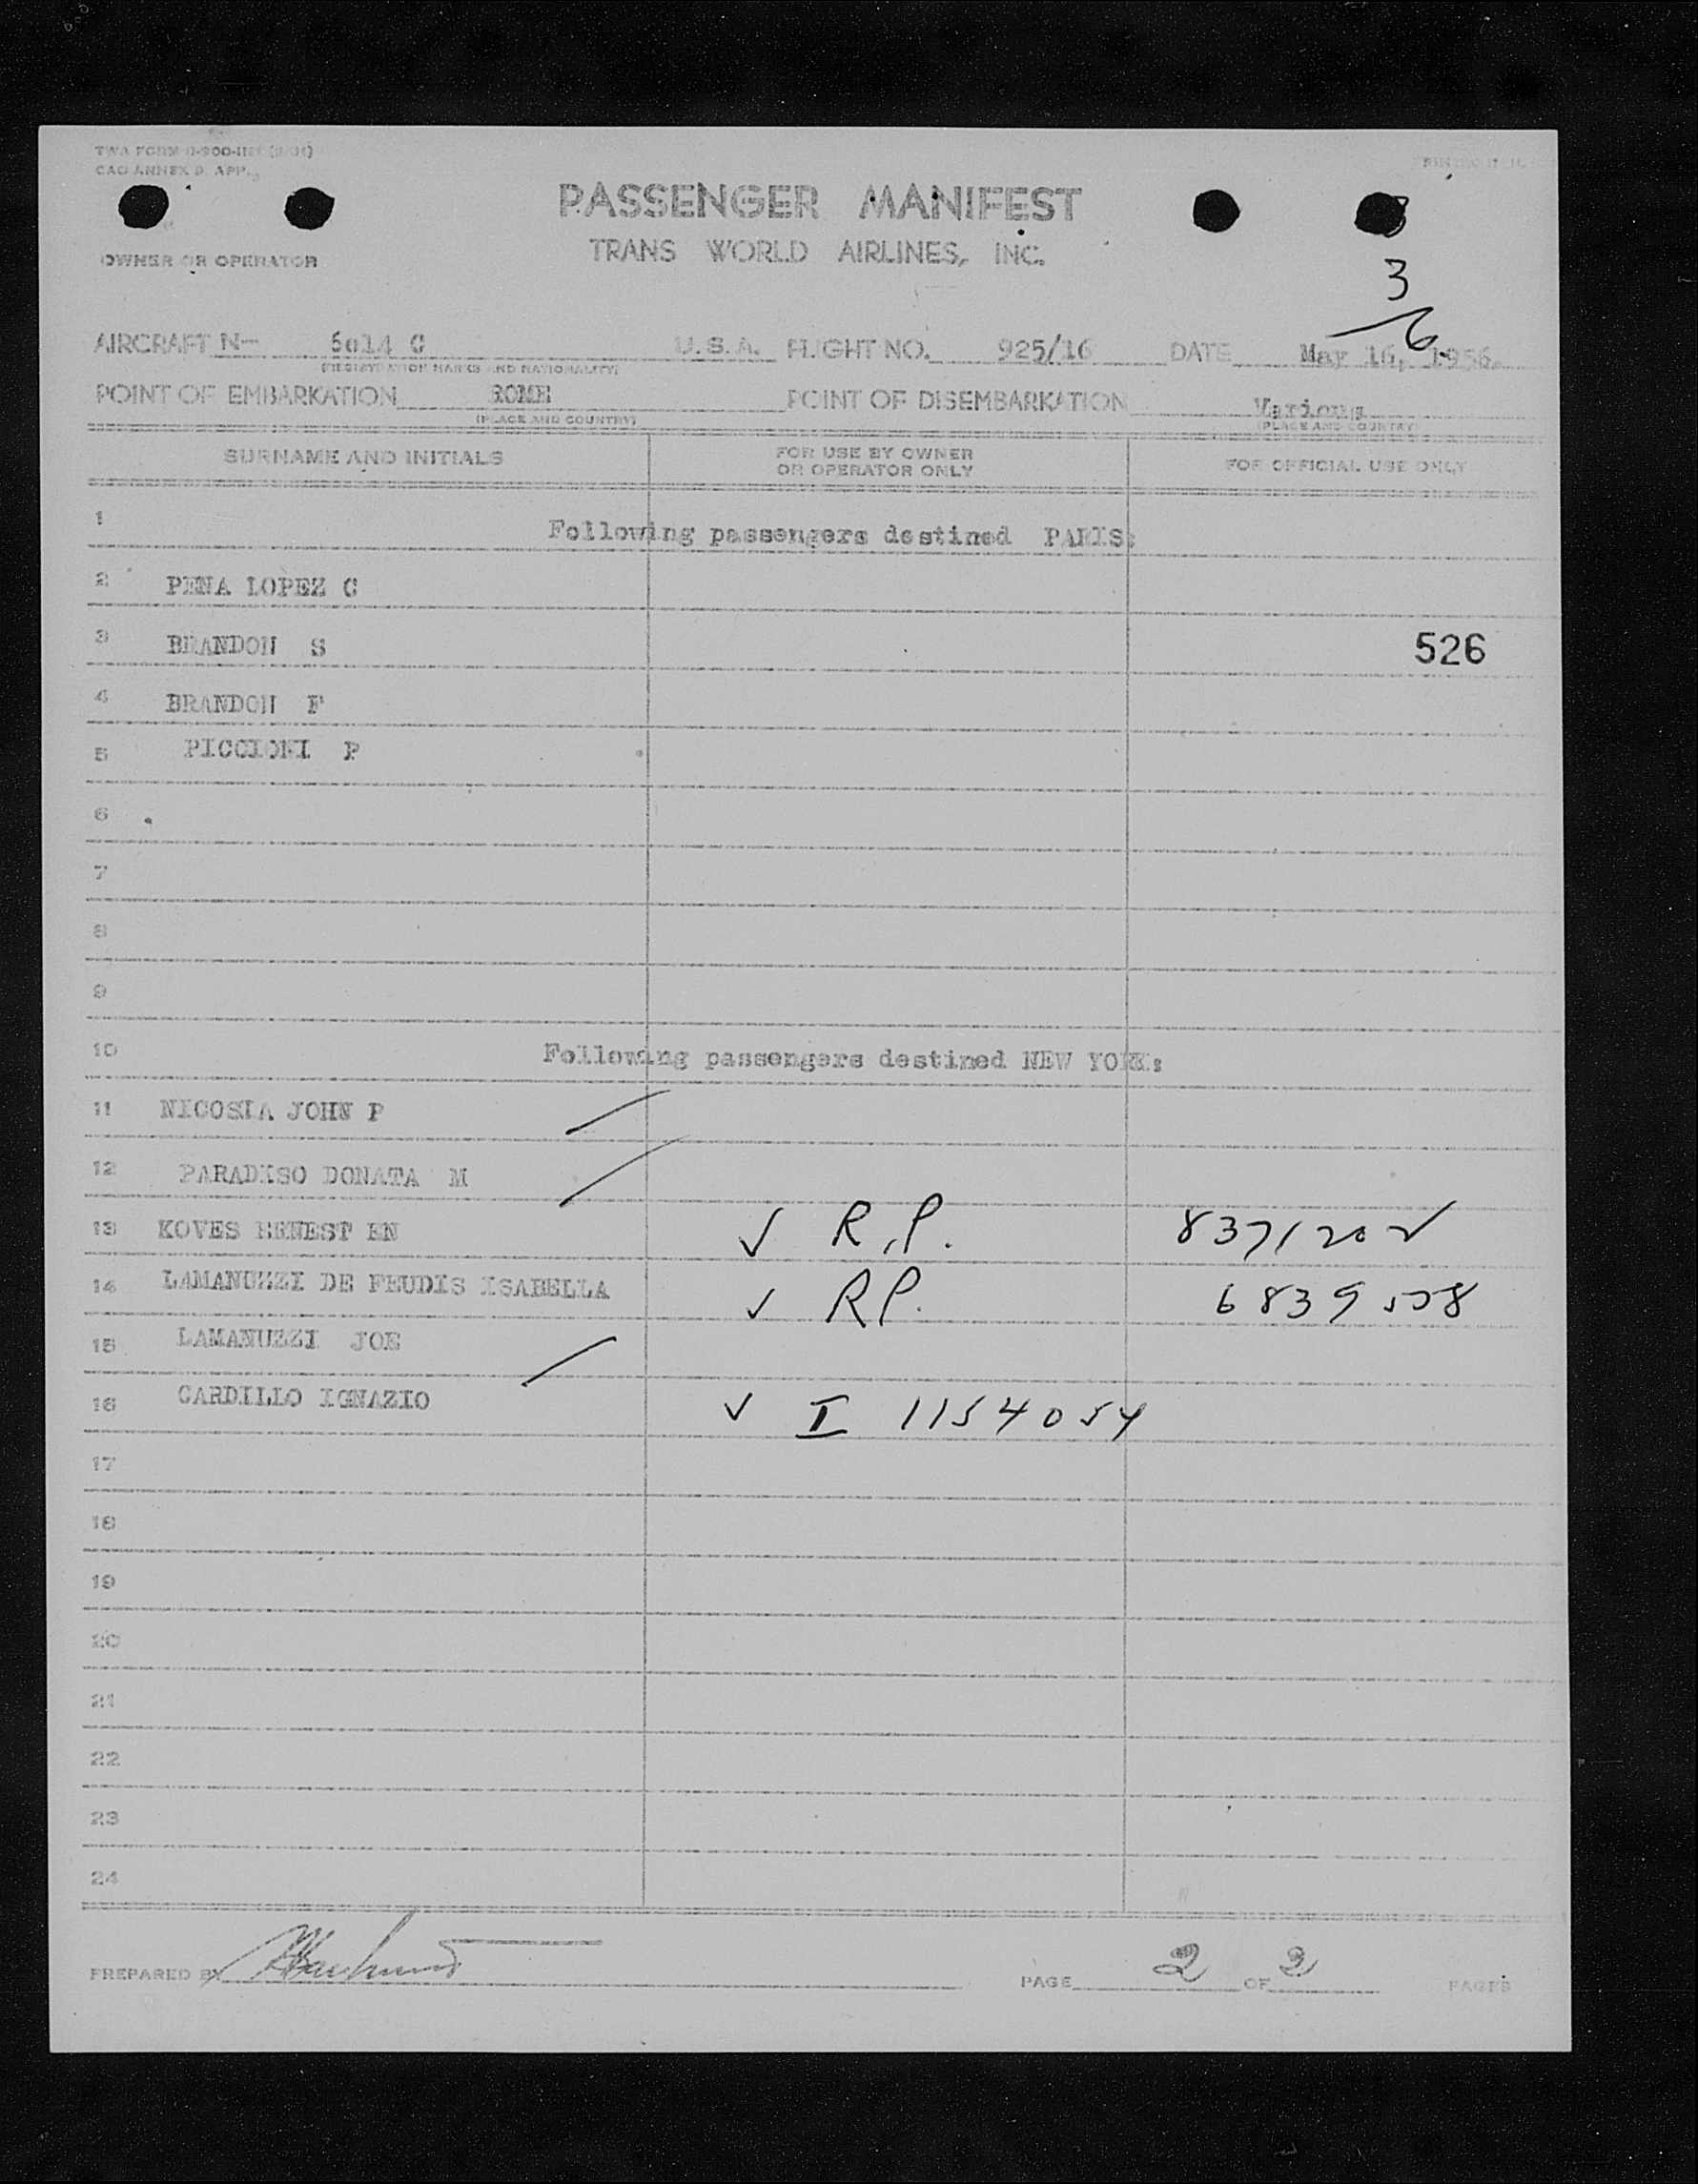 CAO ANNEX 9, APP.
PASSENGER MANIFEST
TRANS WORLD AIRLINES, INC.
OWNER OR OPERATOR
3
6
AIRCRAFT N- 6014 C U.S.A. FLIGHT NO. 925/16 DATE May 16, 1956.
(REGISTRATION MARKS AND NATIONALITY)
POINT OF EMBARKATION ROME POINT OF DISEMBARKATION Various
(PLACE AND COUNTRY) (PLACE AND COUNTRY)
SURNAME AND INITIALS FOR USE BY OWNER OR OPERATOR ONLY FOR OFFICIAL USE ONLY
1 Following passengers destined PARIS:
2 PENA LOPEZ C
3 BRANDON S 526
4 BRANDON F
5 PICCIONI P
6
7
8
9
10 Following passengers destined NEW YORK:
11 NICOSIA JOHN P
12 PARADISO DONATA M
13 KOVES ERNEST EN ✓ R.P. 8371202 ✓
14 LAMANUZZI DE FEUDIS ISABELLA ✓ RP. 6839508
15 LAMANUZZI JOE
16 CARDILLO IGNAZIO ✓ I 1154054
17
18
19
20
21
22
23
24
PREPARED BY PAGE 2 OF 2 PAGES